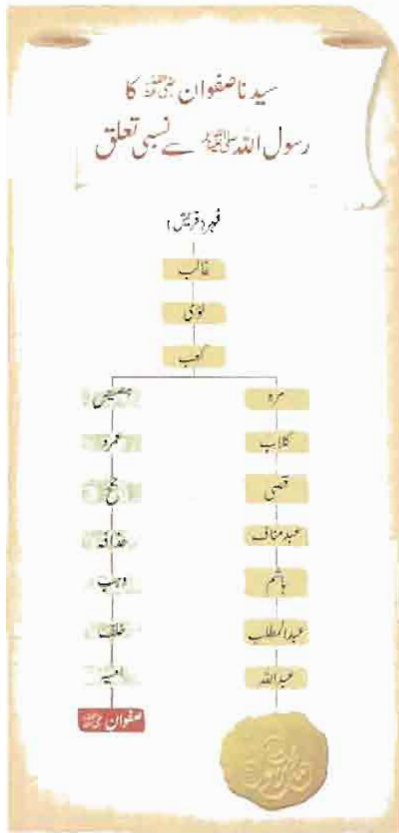 سیدنا صفوان رضی اللہ عنہ کا
رسول اللہ صلی اللہ علیہ وسلم سے نسبی تعلق
فہر (قریش)
غالب
لؤی
کعب
مرہ
کلاب
قصی
عبدمناف
ہاشم
عبدالمطلب
عبداللہ
ھصیص
عمرو
جمح
حذافہ
وہب
خلف
امیہ
صفوان رضی اللہ عنہ